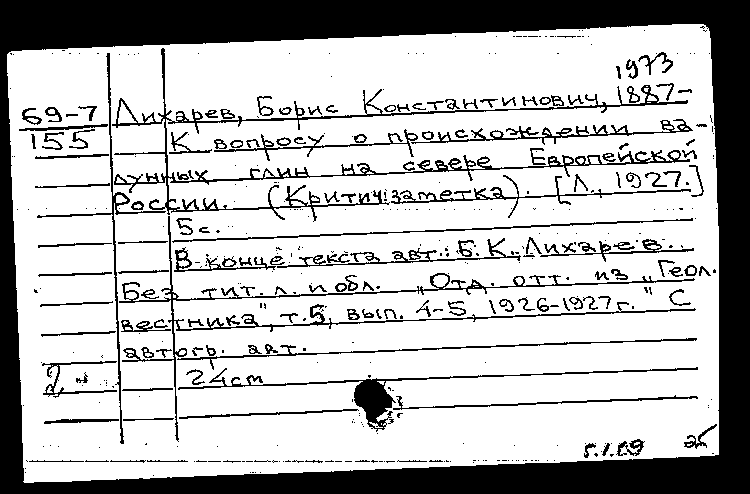 1973
69-7 Лихарев, Борис Константинович, 1887-
155 К вопросу о происхождении ва-
лунных глин на севере Европейской
России. (Критич. заметка). [Л., 1927.]
5 с.
В конце текста авт.: Б. К. Лихарев.
Без тит. л. и обл. "Отд. отт. из "Геол.
вестника", т. 5, вып. 4-5, 1926-1927 г." С
автогр. авт.
24 cm